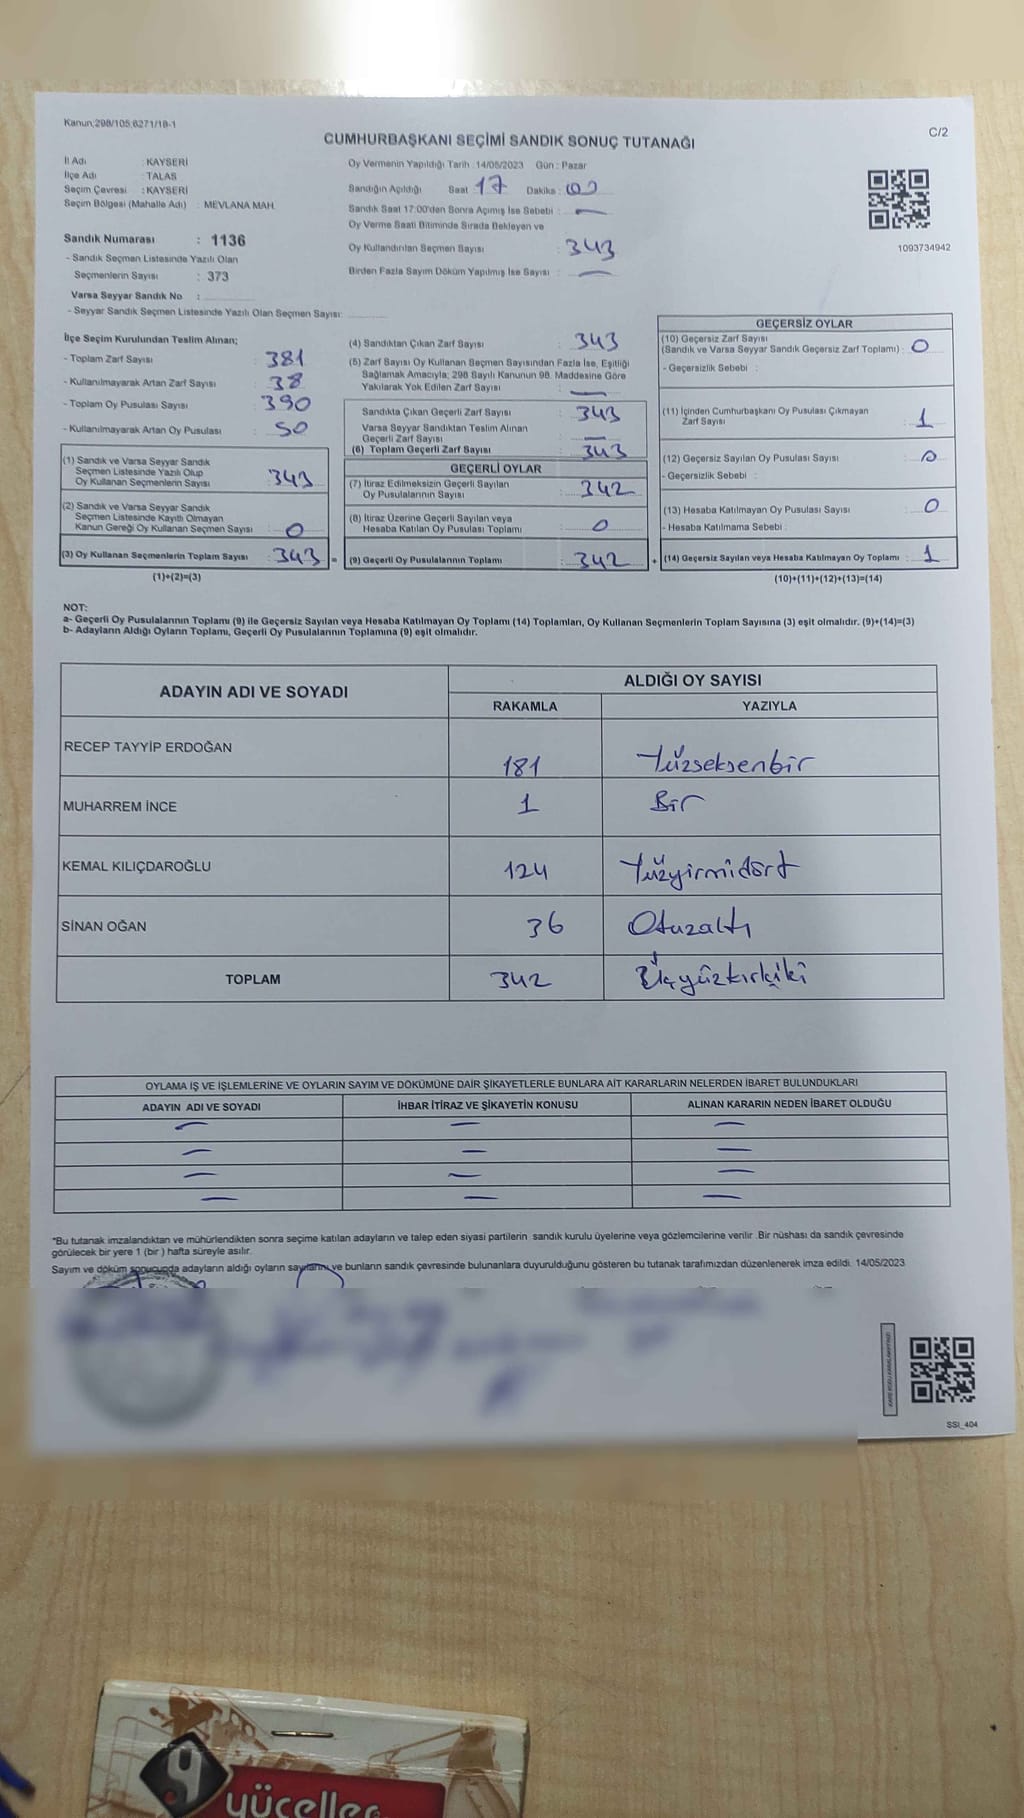 Kanun,298/105,6271/18-1
C/2
CUMHURBAŞKANI SEÇİMİ SANDIK SONUÇ TUTANAĞI
İl Adı : KAYSERİ
İlçe Adı : TALAS
Seçim Çevresi : KAYSERİ
Seçim Bölgesi (Mahalle Adı) : MEVLANA MAH.
Sandık Numarası : 1136
- Sandık Seçmen Listesinde Yazılı Olan
Seçmenlerin Sayısı : 373
Varsa Seyyar Sandık No :
- Seyyar Sandık Seçmen Listesinde Yazılı Olan Seçmen Sayısı:
Oy Vermenin Yapıldığı Tarih : 14/05/2023 Gün : Pazar
Sandığın Açıldığı Saat : 17 Dakika : 00
Sandık Saat 17:00'den Sonra Açmış İse Sebebi : —
Oy Verme Saati Bitiminde Sırada Bekleyen ve
Oy Kullandırılan Seçmen Sayısı : 343
Birden Fazla Sayım Döküm Yapılmış İse Sayısı : —
1093734942
İlçe Seçim Kurulundan Teslim Alınan;
- Toplam Zarf Sayısı : 381
- Kullanılmayarak Artan Zarf Sayısı : 38
- Toplam Oy Pusulası Sayısı : 390
- Kullanılmayarak Artan Oy Pusulası : 50
(1) Sandık ve Varsa Seyyar Sandık
Seçmen Listesinde Yazılı Olup
Oy Kullanan Seçmenlerin Sayısı : 343
(2) Sandık ve Varsa Seyyar Sandık
Seçmen Listesinde Kayıtlı Olmayan
Kanun Gereği Oy Kullanan Seçmen Sayısı : 0
(3) Oy Kullanan Seçmenlerin Toplam Sayısı : 343 =
(1)+(2)=(3)
(4) Sandıktan Çıkan Zarf Sayısı : 343
(5) Zarf Sayısı Oy Kullanan Seçmen Sayısından Fazla İse, Eşitliği
Sağlamak Amacıyla; 298 Sayılı Kanunun 98. Maddesine Göre
Yakılarak Yok Edilen Zarf Sayısı : —
Sandıkta Çıkan Geçerli Zarf Sayısı : 343
Varsa Seyyar Sandıktan Teslim Alınan
Geçerli Zarf Sayısı : —
(6) Toplam Geçerli Zarf Sayısı : 343
GEÇERLİ OYLAR
(7) İtiraz Edilmeksizin Geçerli Sayılan
Oy Pusulalarının Sayısı : 342
(8) İtiraz Üzerine Geçerli Sayılan veya
Hesaba Katılan Oy Pusulası Toplamı : 0
(9) Geçerli Oy Pusulalarının Toplamı : 342 +
GEÇERSİZ OYLAR
(10) Geçersiz Zarf Sayısı
(Sandık ve Varsa Seyyar Sandık Geçersiz Zarf Toplamı) : 0
- Geçersizlik Sebebi :
(11) İçinden Cumhurbaşkanı Oy Pusulası Çıkmayan
Zarf Sayısı : 1
(12) Geçersiz Sayılan Oy Pusulası Sayısı : 0
- Geçersizlik Sebebi :
(13) Hesaba Katılmayan Oy Pusulası Sayısı : 0
- Hesaba Katılmama Sebebi :
(14) Geçersiz Sayılan veya Hesaba Katılmayan Oy Toplamı : 1
(10)+(11)+(12)+(13)=(14)
NOT:
a- Geçerli Oy Pusulalarının Toplamı (9) ile Geçersiz Sayılan veya Hesaba Katılmayan Oy Toplamı (14) Toplamları, Oy Kullanan Seçmenlerin Toplam Sayısına (3) eşit olmalıdır. (9)+(14)=(3)
b- Adayların Aldığı Oyların Toplamı, Geçerli Oy Pusulalarının Toplamına (9) eşit olmalıdır.
ADAYIN ADI VE SOYADI ALDIĞI OY SAYISI
RAKAMLA YAZIYLA
RECEP TAYYİP ERDOĞAN 181 Yüzseksenbir
MUHARREM İNCE 1 Bir
KEMAL KILIÇDAROĞLU 124 Yüzyirmidört
SİNAN OĞAN 36 Otuzaltı
TOPLAM 342 Üçyüzkırkiki
OYLAMA İŞ VE İŞLEMLERİNE VE OYLARIN SAYIM VE DÖKÜMÜNE DAİR ŞİKAYETLERLE BUNLARA AİT KARARLARIN NELERDEN İBARET BULUNDUKLARI
ADAYIN ADI VE SOYADI İHBAR İTİRAZ VE ŞİKAYETİN KONUSU ALINAN KARARIN NEDEN İBARET OLDUĞU
— — —
— — —
— — —
— — —
"Bu tutanak imzalandıktan ve mühürlendikten sonra seçime katılan adayların ve talep eden siyasi partilerin sandık kurulu üyelerine veya gözlemcilerine verilir. Bir nüshası da sandık çevresinde
görülecek bir yere 1 (bir ) hafta süreyle asılır.
Sayım ve döküm sonucunda adayların aldığı oyların sayılarını ve bunların sandık çevresinde bulunanlara duyurulduğunu gösteren bu tutanak tarafımızdan düzenlenerek imza edildi. 14/05/2023
SSI_404
yüceller